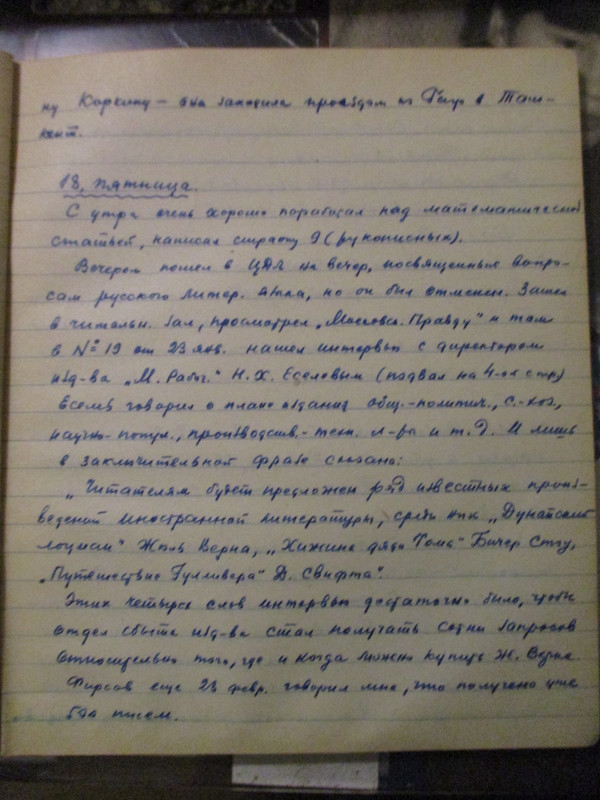 ну Коркину — она заходила проездом из в Таш-
кент.
18, пятница.
С утра очень хорошо поработал над математической
статьей, написал страницу 9 (рукописных).
Вечером пошел в ЦДЛ на вечер, посвященный вопро-
сам русского литер. языка, но он был отменен. Зашел
в читальн. зал, просмотрел „Московс. Правду" и там
в № 19 от 23 янв. нашел интервью с директором
изд-ва „М. Рабоч." Н. Х. Еселевым (подвал на 4-ой стр)
Еселев говорил о плане издания общ.-политич., с.-хоз,
научно-попул., производств.-техн. л-ры и т. д. И лишь
в заключительной фразе сказано:
„Читателям будет предложен ряд известных произ-
ведений иностранной литературы, среди них „Дунайский
лоцман" Жюль Верна, „Хижина дяди Тома" Бичер Стоу,
„Путешествие Гулливера" Д. Свифта".
Этих четырех слов интервью достаточно было, чтобы
отдел сбыта изд-ва стал получать сотни запросов
относительно того, где и когда можно купить Ж. Верна
Фирсов еще 23 февр. говорил мне, что получено уже
писем.